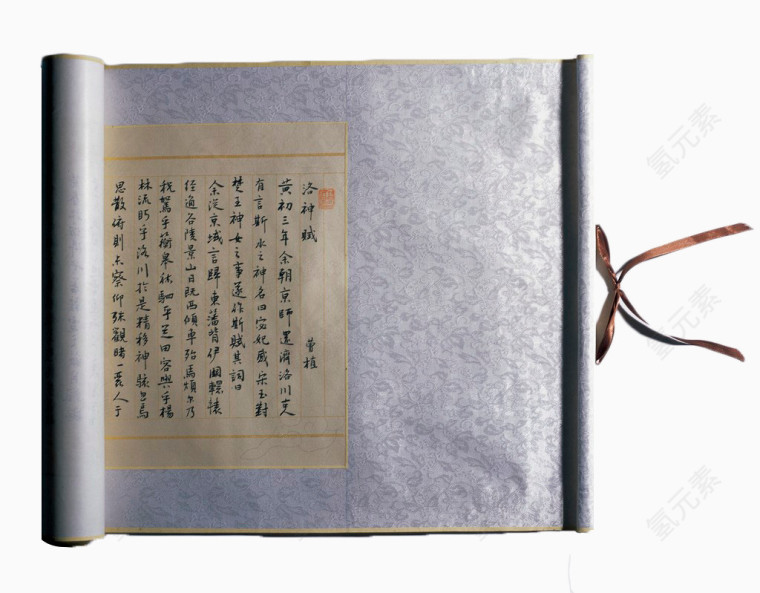 洛神賦
曹植
黃初三年余朝京師還濟洛川古人
有言斯水之神名曰宓妃感宋玉對
楚王神女之事遂作斯賦其詞曰
余從京域言歸東藩背伊闕轘轅
經通谷陵景山日既西傾車殆馬煩尔乃
税駕乎蘅皋秣駟乎芝田容與乎楊
林流眄乎洛川於是精移神駭忽焉
思散俯則未察仰殊觀睹一麗人于
氢元素
氢元素
氢元素